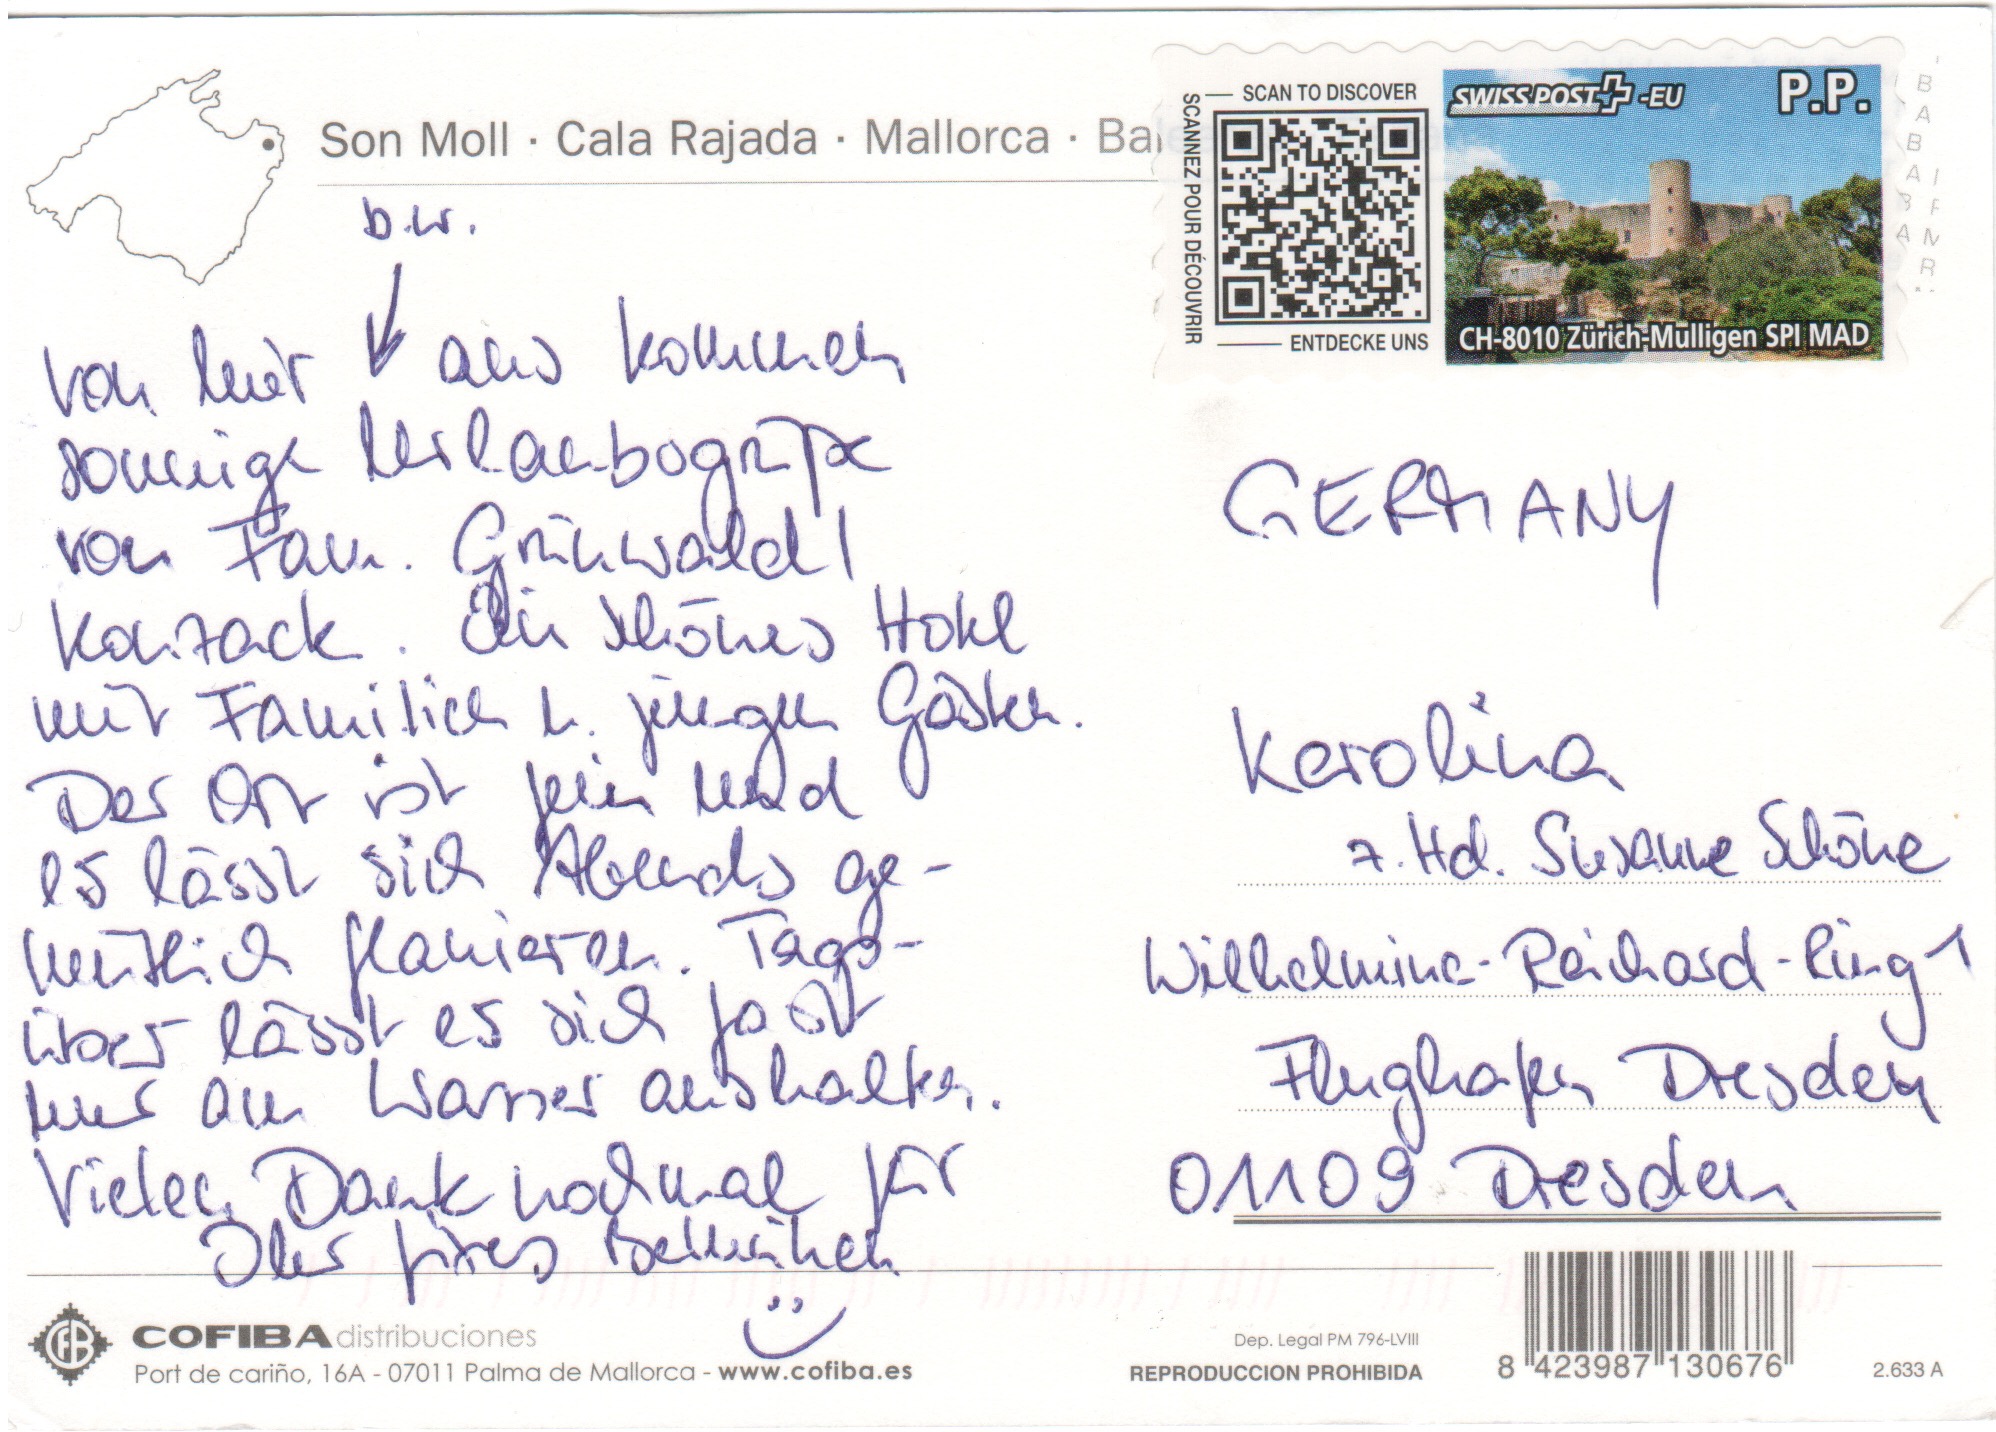 Son Moll · Cala Rajada · Mallorca ·
b.w.
von hier aus kommen
sonnige Urlaubsgrüße
von Fam. Grünwald/
Konzack. Ein schönes Hotel
mit Familien u. jungen Gästen.
Der Ort ist fein und
es lässt sich Abends ge-
mütlich flanieren. Tags-
über lässt es sich fast
nur am Wasser aushalten.
Vielen Dank nochmal für
Ihr Bemühen
SCAN TO DISCOVER
SCANNEZ POUR DÉCOUVRIR
ENTDECKE UNS
SWISS POST -EU
P.P.
CH-8010 Zürich-Mülligen SPI MAD
GERMANY
Karolina
z.Hd. Susanne Schöne
Wilhelmine-Reichard-Ring 1
Flughafen Dresden
01109 Dresden
CFB
COFIBA distribuciones
Port de cariño, 16A - 07011 Palma de Mallorca - www.cofiba.es
Dep. Legal PM 796-LVIII
REPRODUCCION PROHIBIDA
8 423987 130676
2.633 A